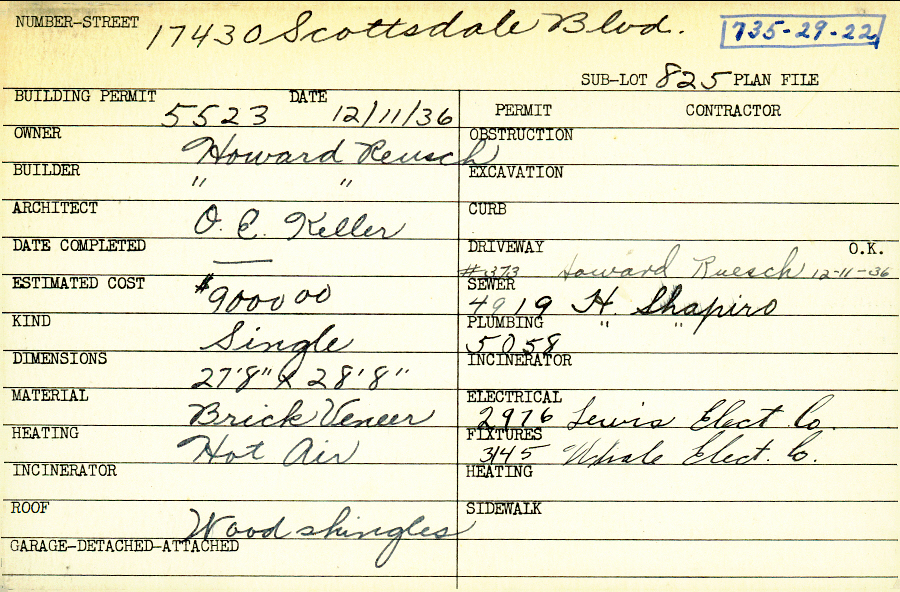 NUMBER-STREET 17430 Scottsdale Blvd. 735-29-22
SUB-LOT 825 PLAN FILE
BUILDING PERMIT 5523 DATE 12/11/36
PERMIT CONTRACTOR
OWNER Howard Reusch
OBSTRUCTION
BUILDER " "
EXCAVATION
ARCHITECT O. E. Keller
CURB
DATE COMPLETED —
DRIVEWAY O.K.
#373 Howard Ruesch 12-11-36
ESTIMATED COST $9000 00
SEWER
4919 H. Shapiro
KIND Single
PLUMBING " "
5058
DIMENSIONS 27'8" x 28'8"
INCINERATOR
MATERIAL Brick Veneer
ELECTRICAL
2976 Lewis Elect Co.
HEATING Hot Air
FIXTURES
3145 Whale Elect. Co.
INCINERATOR
HEATING
ROOF Wood shingles
SIDEWALK
GARAGE-DETACHED-ATTACHED